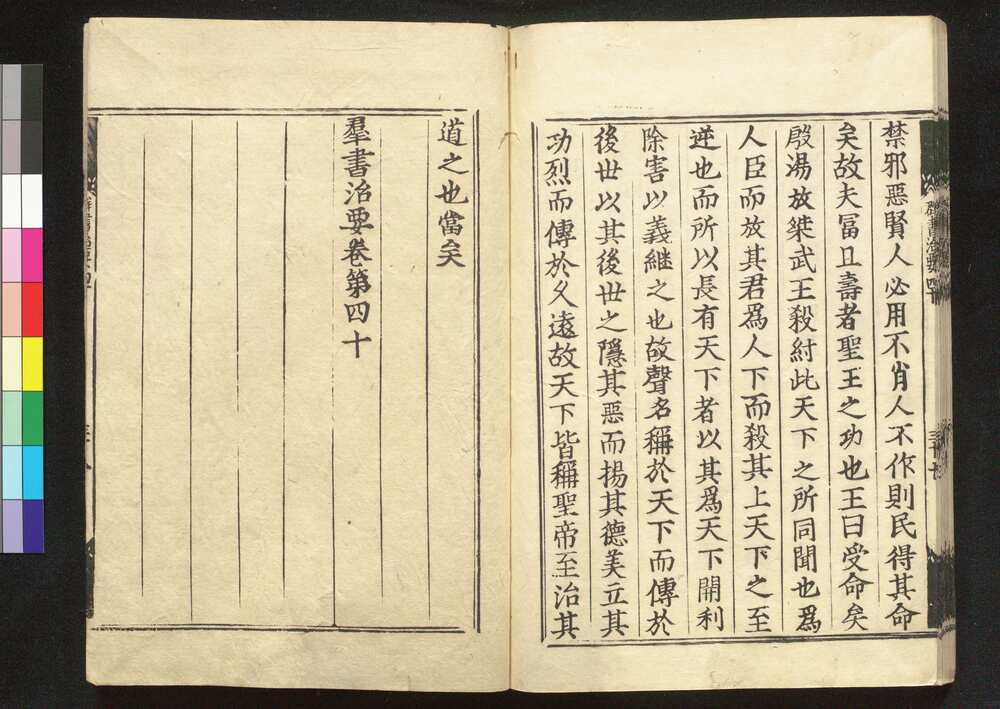 禁邪惡賢人必用不肖人不作則民得其命
矣故夫冨且壽者聖王之功也王曰受命矣
殷湯放桀武王殺紂此天下之所同聞也爲
人臣而放其君爲人下而殺其上天下之至
逆也而所以長有天下者以其爲天下開利
除害以義継之也故聲名稱於天下而傳於
後世以其後世之隱其惡而揚其德美立其
功烈而傳於久遠故天下皆稱聖帝至治其
道之也當矣
羣書治要卷第四十